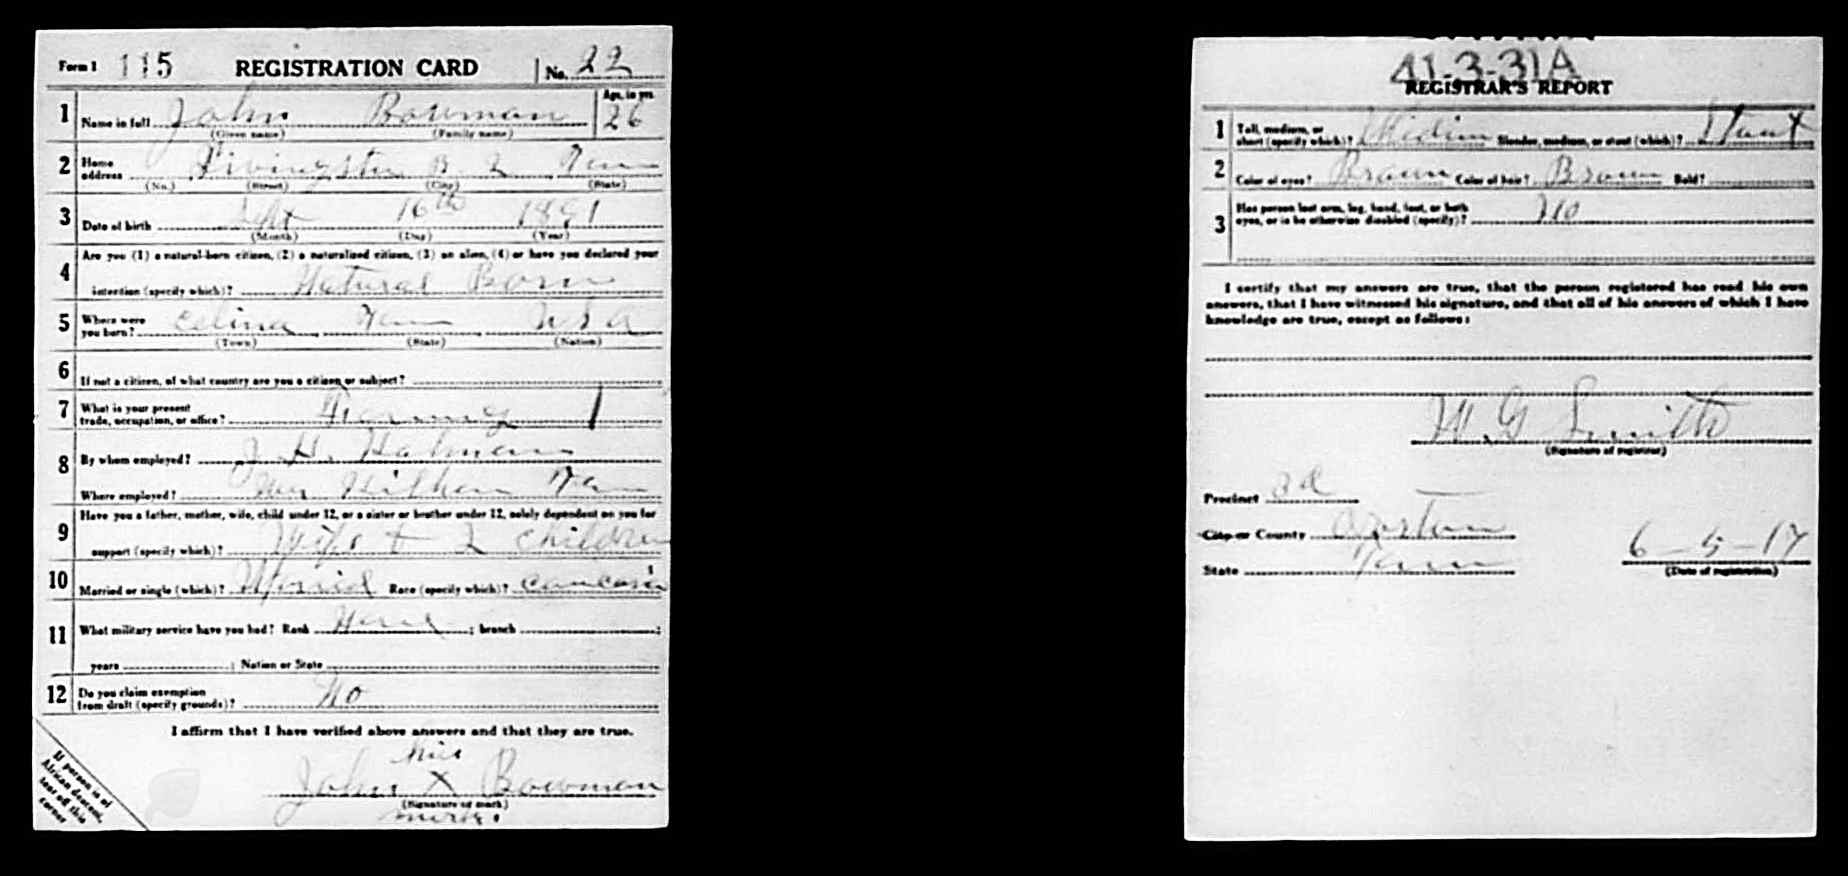 Form 1 115 REGISTRATION CARD No. 22
1 Name in full John Bowman Age, in yrs. 26
(Given name) (Family name)
2 Home address Livingston R. 2 Tenn
(No.) (Street) (City) (State)
3 Date of birth Sept 16th 1891
(Month) (Day) (Year)
Are you (1) a natural-born citizen, (2) a naturalized citizen, (3) an alien, (4) or have you declared your
4 intention (specify which)? Natural Born
5 Where were you born? Celina Tenn USA
(Town) (State) (Nation)
6 If not a citizen, of what country are you a citizen or subject?
7 What is your present trade, occupation, or office? Farming
8 By whom employed? J. H. Holman
Where employed? Tenn
Have you a father, mother, wife, child under 12, or a sister or brother under 12, solely dependent on you for
9 support (specify which)? Wife + 2 children
10 Married or single (which)? Married Race (specify which)?
11 What military service have you had? Rank ; branch ;
years ; Nation or State
12 Do you claim exemption from draft (specify grounds)? No
I affirm that I have verified above answers and that they are true.
his
John X Bowman
(Signature or mark)
mark.
If person is of
African descent,
tear off this
corner
41-3-31A
REGISTRAR'S REPORT
1 Tall, medium, or short (specify which)? Medium Slender, medium, or stout (which)? Stout
2 Color of eyes? Brown Color of hair? Brown Bald?
3 Has person lost arm, leg, hand, foot, or both eyes, or is he otherwise disabled (specify)? No
I certify that my answers are true, that the person registered has read his own
answers, that I have witnessed his signature, and that all of his answers of which I have
knowledge are true, except as follows:
W. G Smith
(Signature of registrar)
Precinct 3d
City or County Overton
State Tenn
6-5-17
(Date of registration)